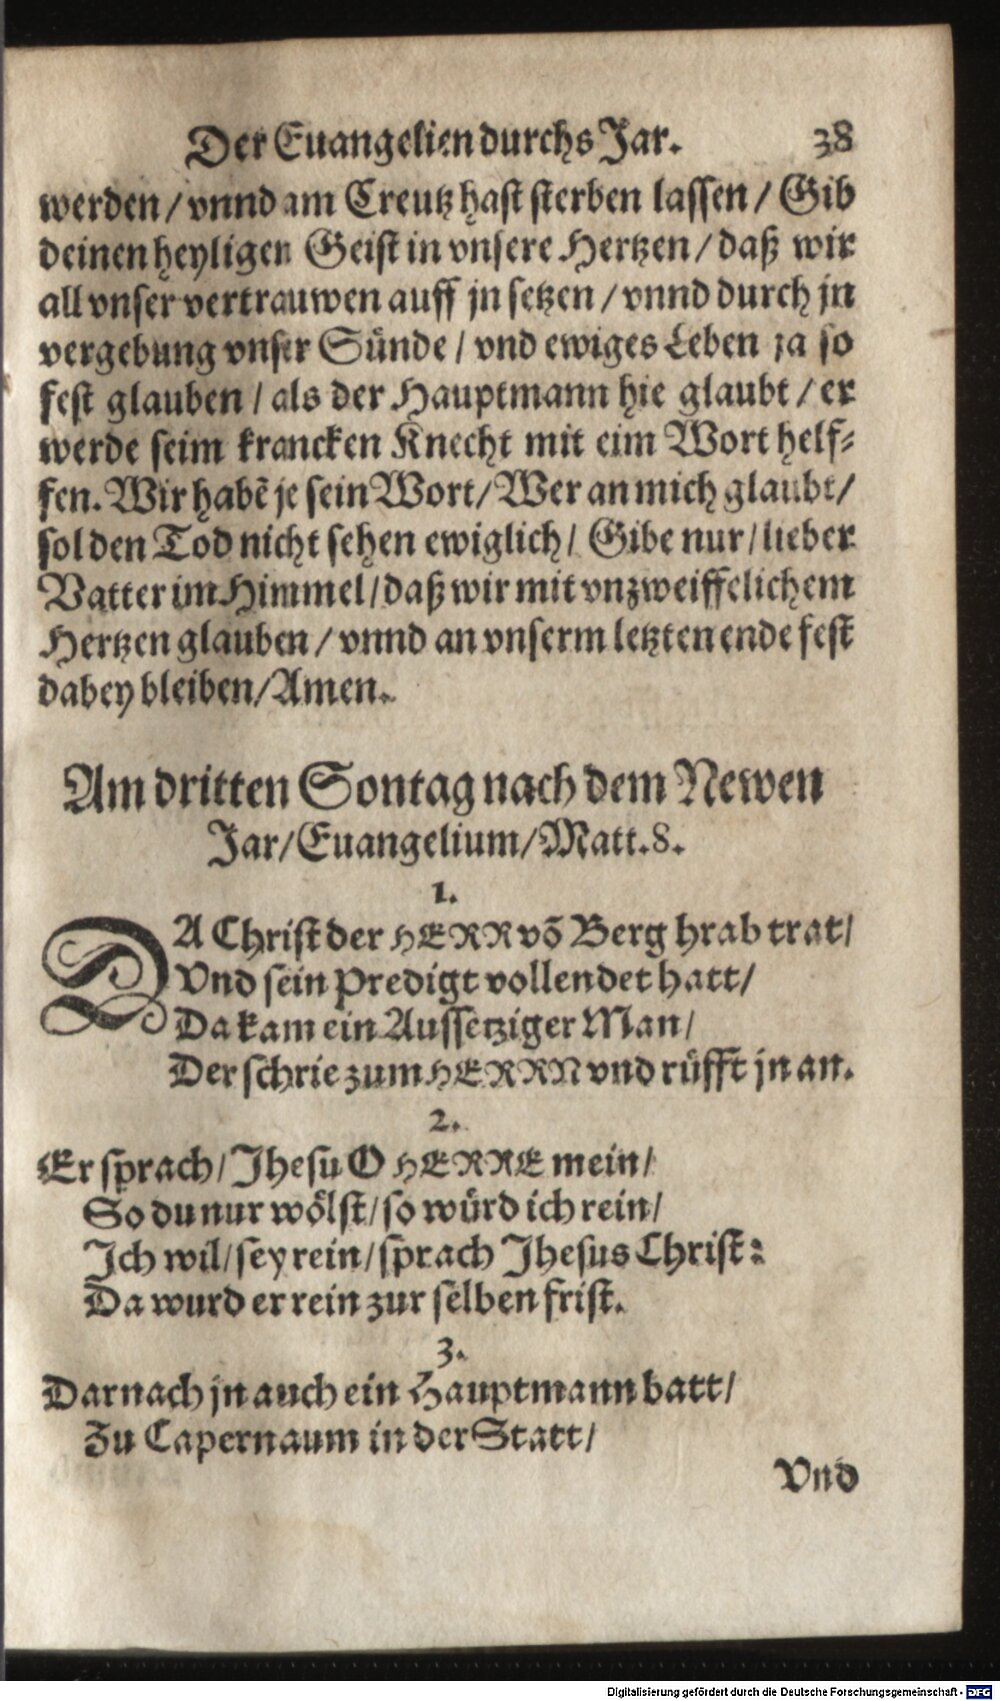 Der Euangelien durchs Jar. 38
werden / vnnd am Creutz hast sterben lassen / Gib
deinen heyligen Geist in vnsere Hertzen / daß wir
all vnser vertrauwen auff jn setzen / vnnd durch jn
vergebung vnser Sünde / vnd ewiges Leben ja so
fest glauben / als der Hauptmann hie glaubt / er
werde seim krancken Knecht mit eim Wort helf-
fen. Wir habẽ je sein Wort / Wer an mich glaubt /
sol den Tod nicht sehen ewiglich / Gibe nur / lieber
Vatter im Himmel / daß wir mit vnzweiffelichem
Hertzen glauben / vnnd an vnserm letzten ende fest
dabey bleiben / Amen.
Am dritten Sontag nach dem Newen
Jar / Euangelium / Matt. 8.
1.
DA Christ der HERR võ Berg hrab trat /
Vnd sein Predigt vollendet hatt /
Da kam ein Aussetziger Man /
Der schrie zum HERRN vnd rüfft jn an.
2.
Er sprach / Jhesu O HERRE mein /
So du nur wölst / so würd ich rein /
Ich wil / sey rein / sprach Jhesus Christ:
Da wurd er rein zur selben frist.
3.
Darnach jn auch ein Hauptmann batt /
Zu Capernaum in der Statt /
Vnd
Digitalisierung gefördert durch die Deutsche Forschungsgemeinschaft - DFG